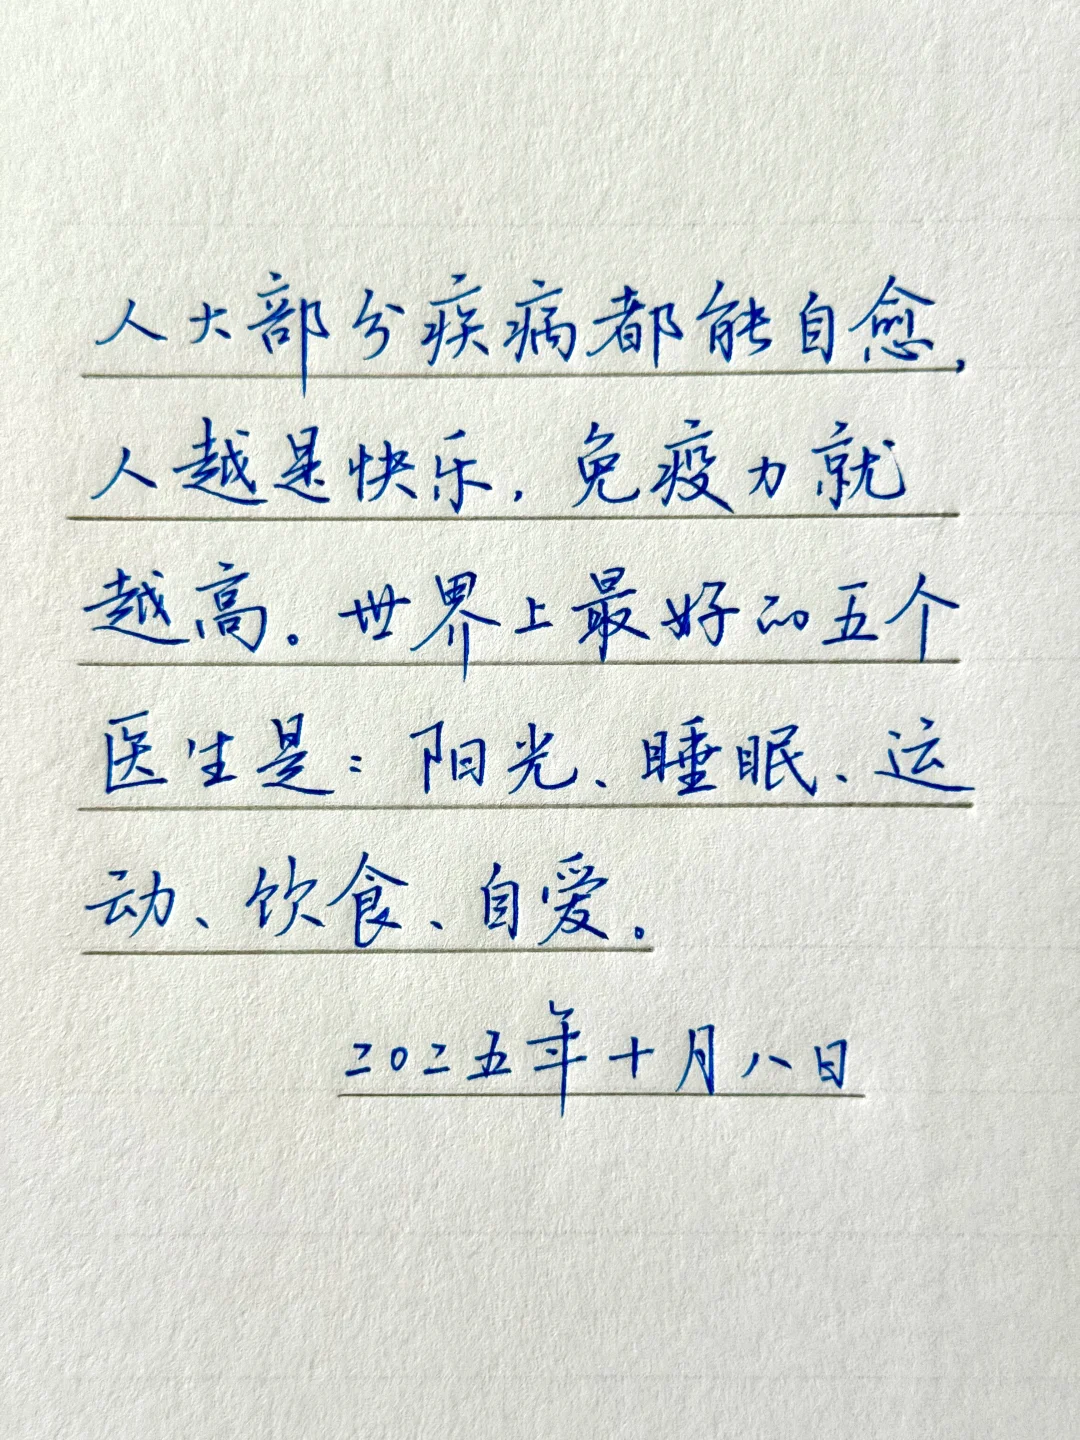 人大部分疾病都能自愈,
人越是快乐,免疫力就
越高。世界上最好的五个
医生是:阳光、睡眠、运
动、饮食、自爱。
二〇二五年十月八日